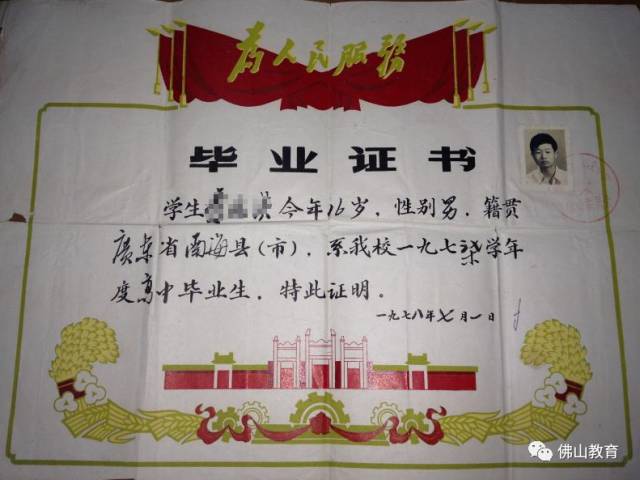 为人民服务
毕业证书
学生 今年16岁，性别男，籍贯
廣东省南海县（市），系我校一九七柒学年
度高中毕业生，特此证明。
一九七八年七月一日
佛山教育